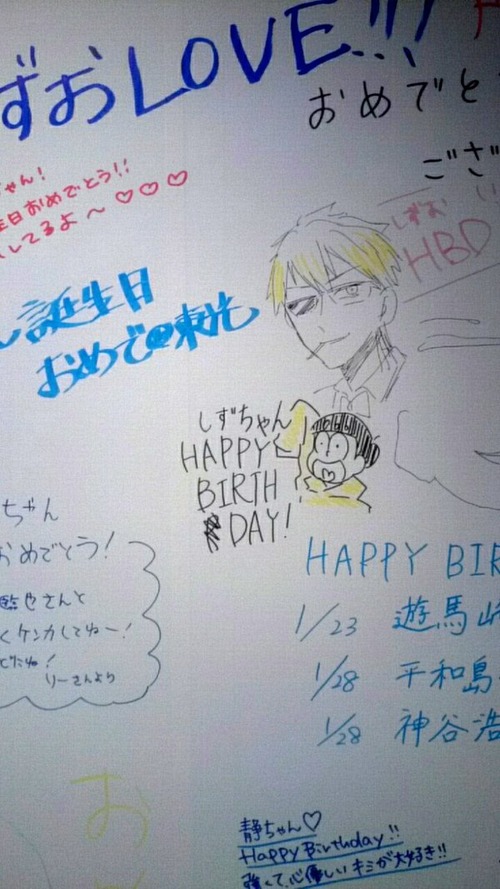 ずおLOVE!!!
おめでと
ござ
ちゃん!
生日おめでとう!!
してるよ～♡♡♡
しずお
HBD
誕生日
おめで
しずちゃん
HAPPY
BIRTH
DAY!
ちゃん
おめでとう!
臨也さんと
くケンカしてねー!
りーさんより
HAPPY BIR
1/23 遊馬
1/28 平和島
1/28 神谷浩
お
静ちゃん♡
Happy Birthday!!
強くて、心優しいキミが大好き!!